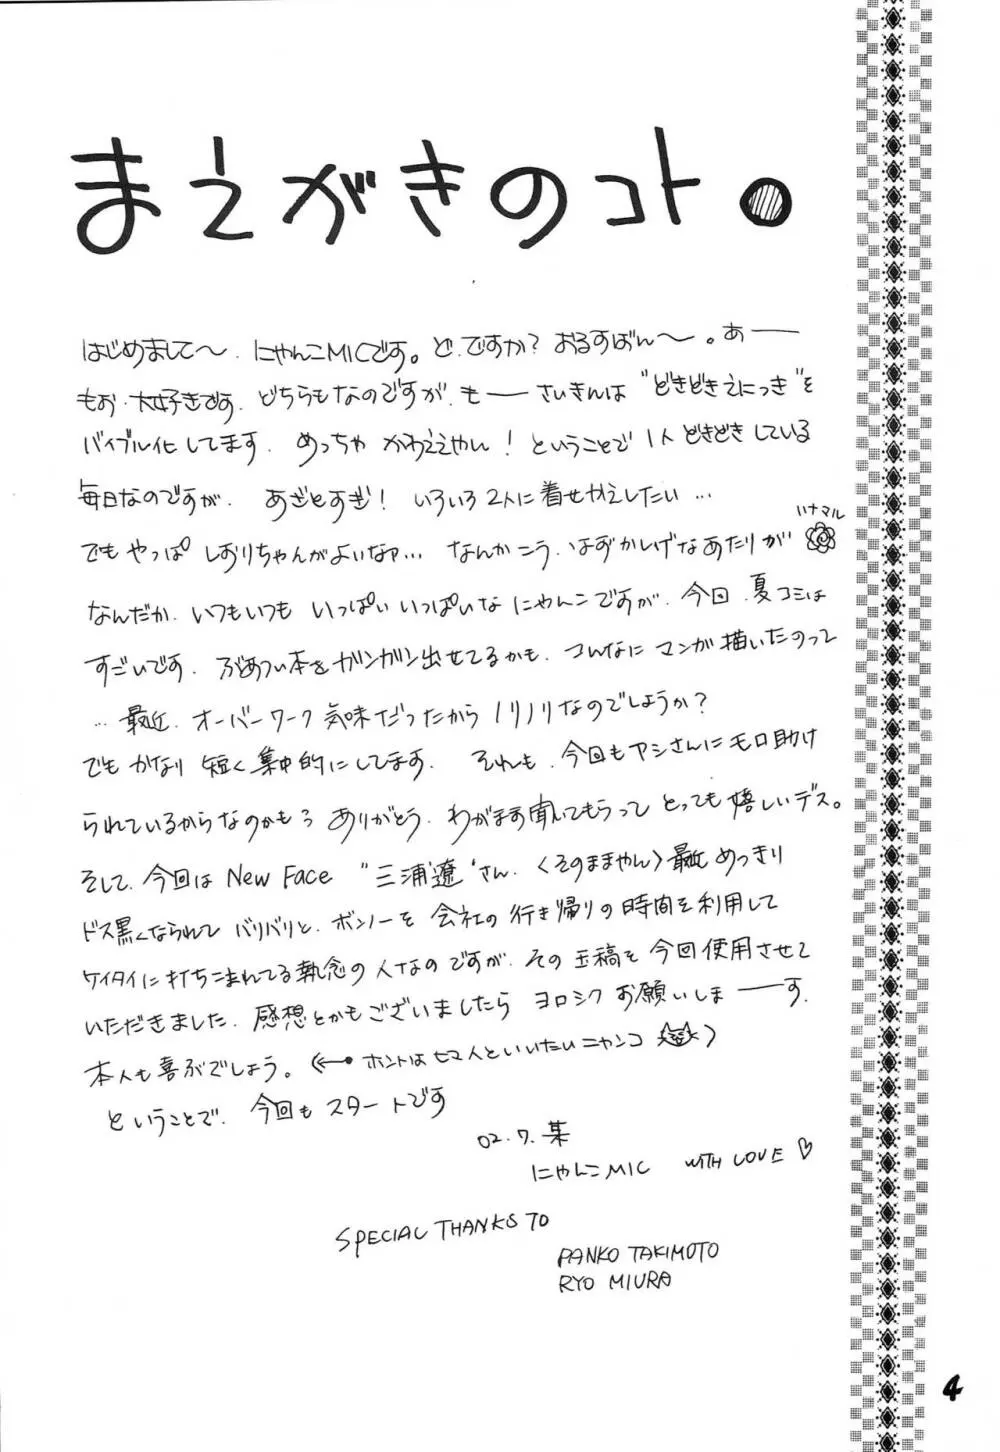 まえがきのコト。
はじめまして〜、にゃんこMICです。ど、ですか？おるすばん〜。あー
もお、大好きです。どちらもなのですが、もーさいきんは"どきどきえにっき"を
バイブル化してます。めっちゃかわええやん！ということで1人どきどきしている
毎日なのですが、あざとすぎ！いろいろ2人に着せかえしたい…
ハナマル
でもやっぱしおりちゃんがよいなァ…なんかこう、はずかしげなあたりが
なんだか、いつもいつもいっぱいいっぱいなにゃんこですが、今回、夏コミは
すごいです。ぶあつい本をガンガン出せてるかも。こんなにマンガ描いたのって
…最近、オーバーワーク気味だったからノリノリなのでしょうか？
でもかなり短く集中的にしてます。それも、今回もアシさんにモロ助け
られているからなのかもう ありがとう。わがまま聞いてもらってとっても嬉しいデス。
そして、今回はNew Face "三浦遼"さん、〈そのままやん〉最近めっきり
ドス黒くなられてバリバリと、ボンノーを会社の行き帰りの時間を利用して
ケイタイに打ちこまれてる執念の人なのですが、その玉稿を今回使用させて
いただきました。感想とかもございましたらヨロシクお願いしまーす。
本人も喜ぶでしょう。(←ホントはセマ人といいたいニャンコ)
ということで、今回もスタートです
02.7.某
にゃんこMIC WITH LOVE♡
SPECIAL THANKS TO
PANKO TAKIMOTO
RYO MIURA
4